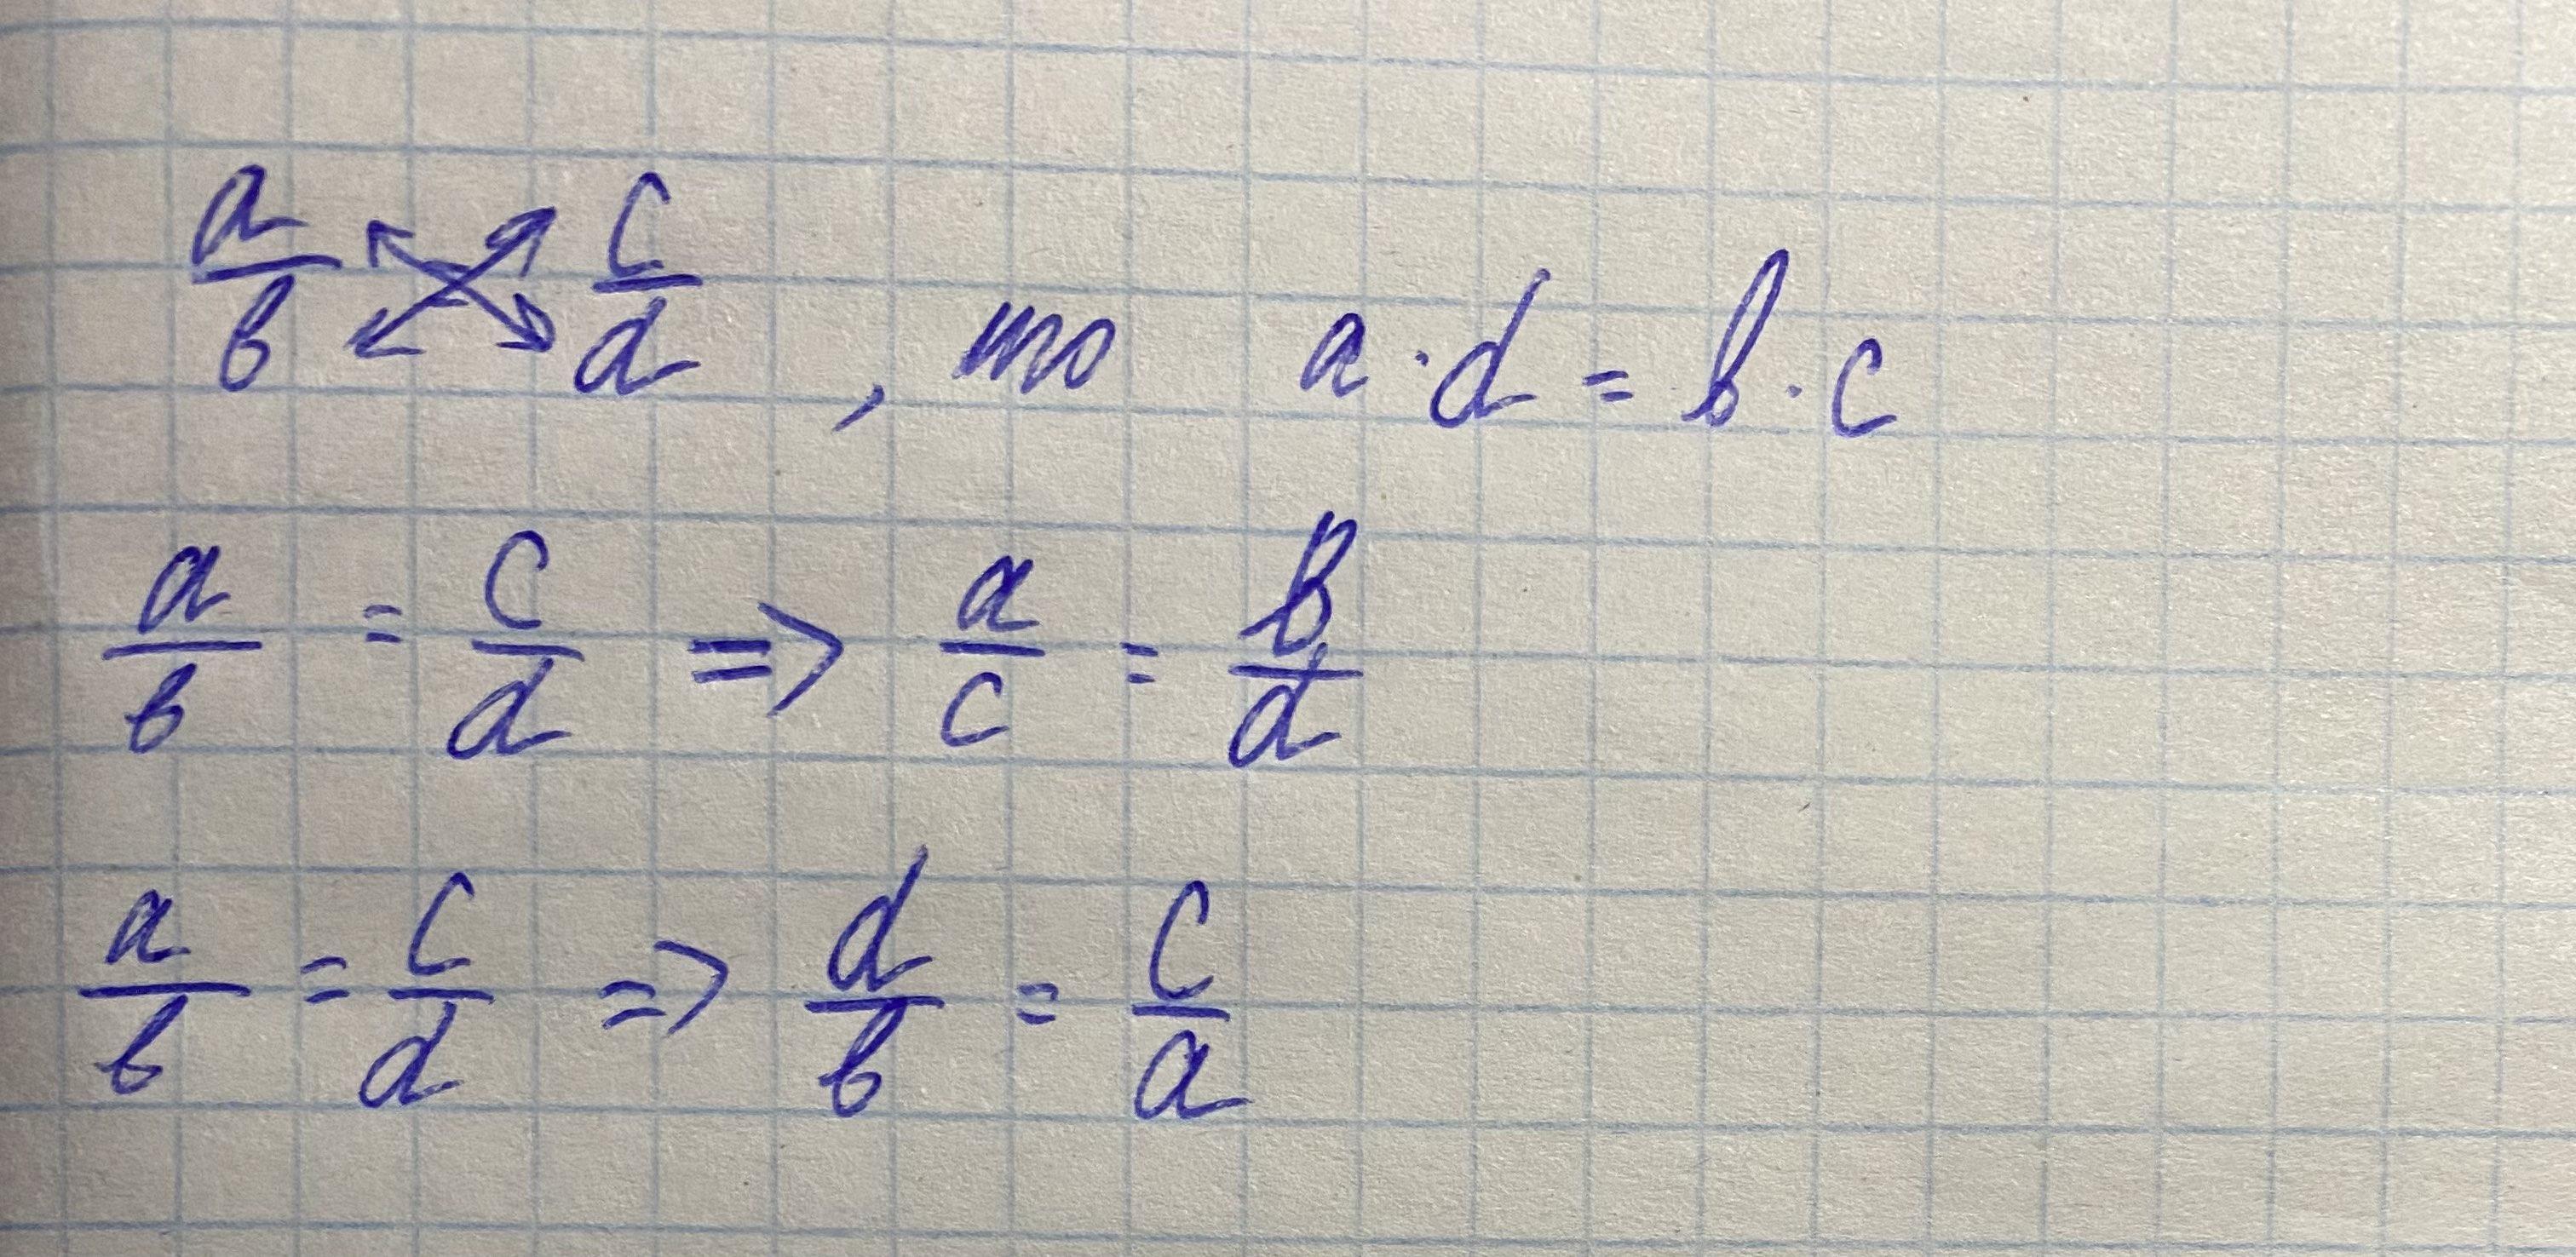 a/b c/d , то a · d = b · c
a/b = c/d => a/c = b/d
a/b = c/d => d/b = c/a